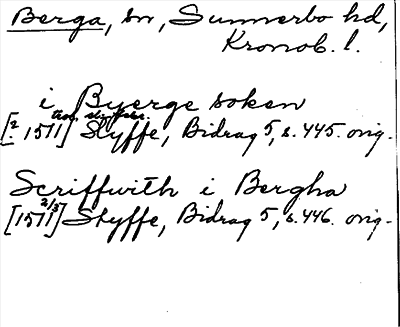 Berga, sn, Sunnerbo hd,
Kronob. l.
i Byerge soken
[? 1571] Styffe, Bidrag 5, s. 445. orig.
Scriffwith i Bergha
2/3
[1571] Styffe, Bidrag 5, s. 446. orig.